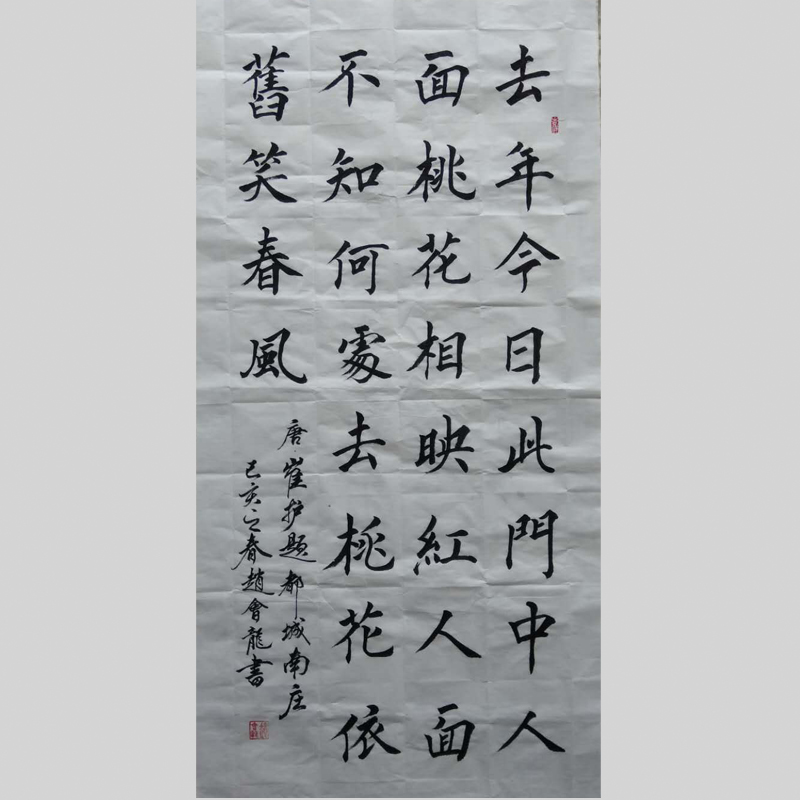 去年今日此門中人
面桃花相映紅人面
不知何處去桃花依
舊笑春風
唐崔护题都城南庄
己亥之春趙會龍書